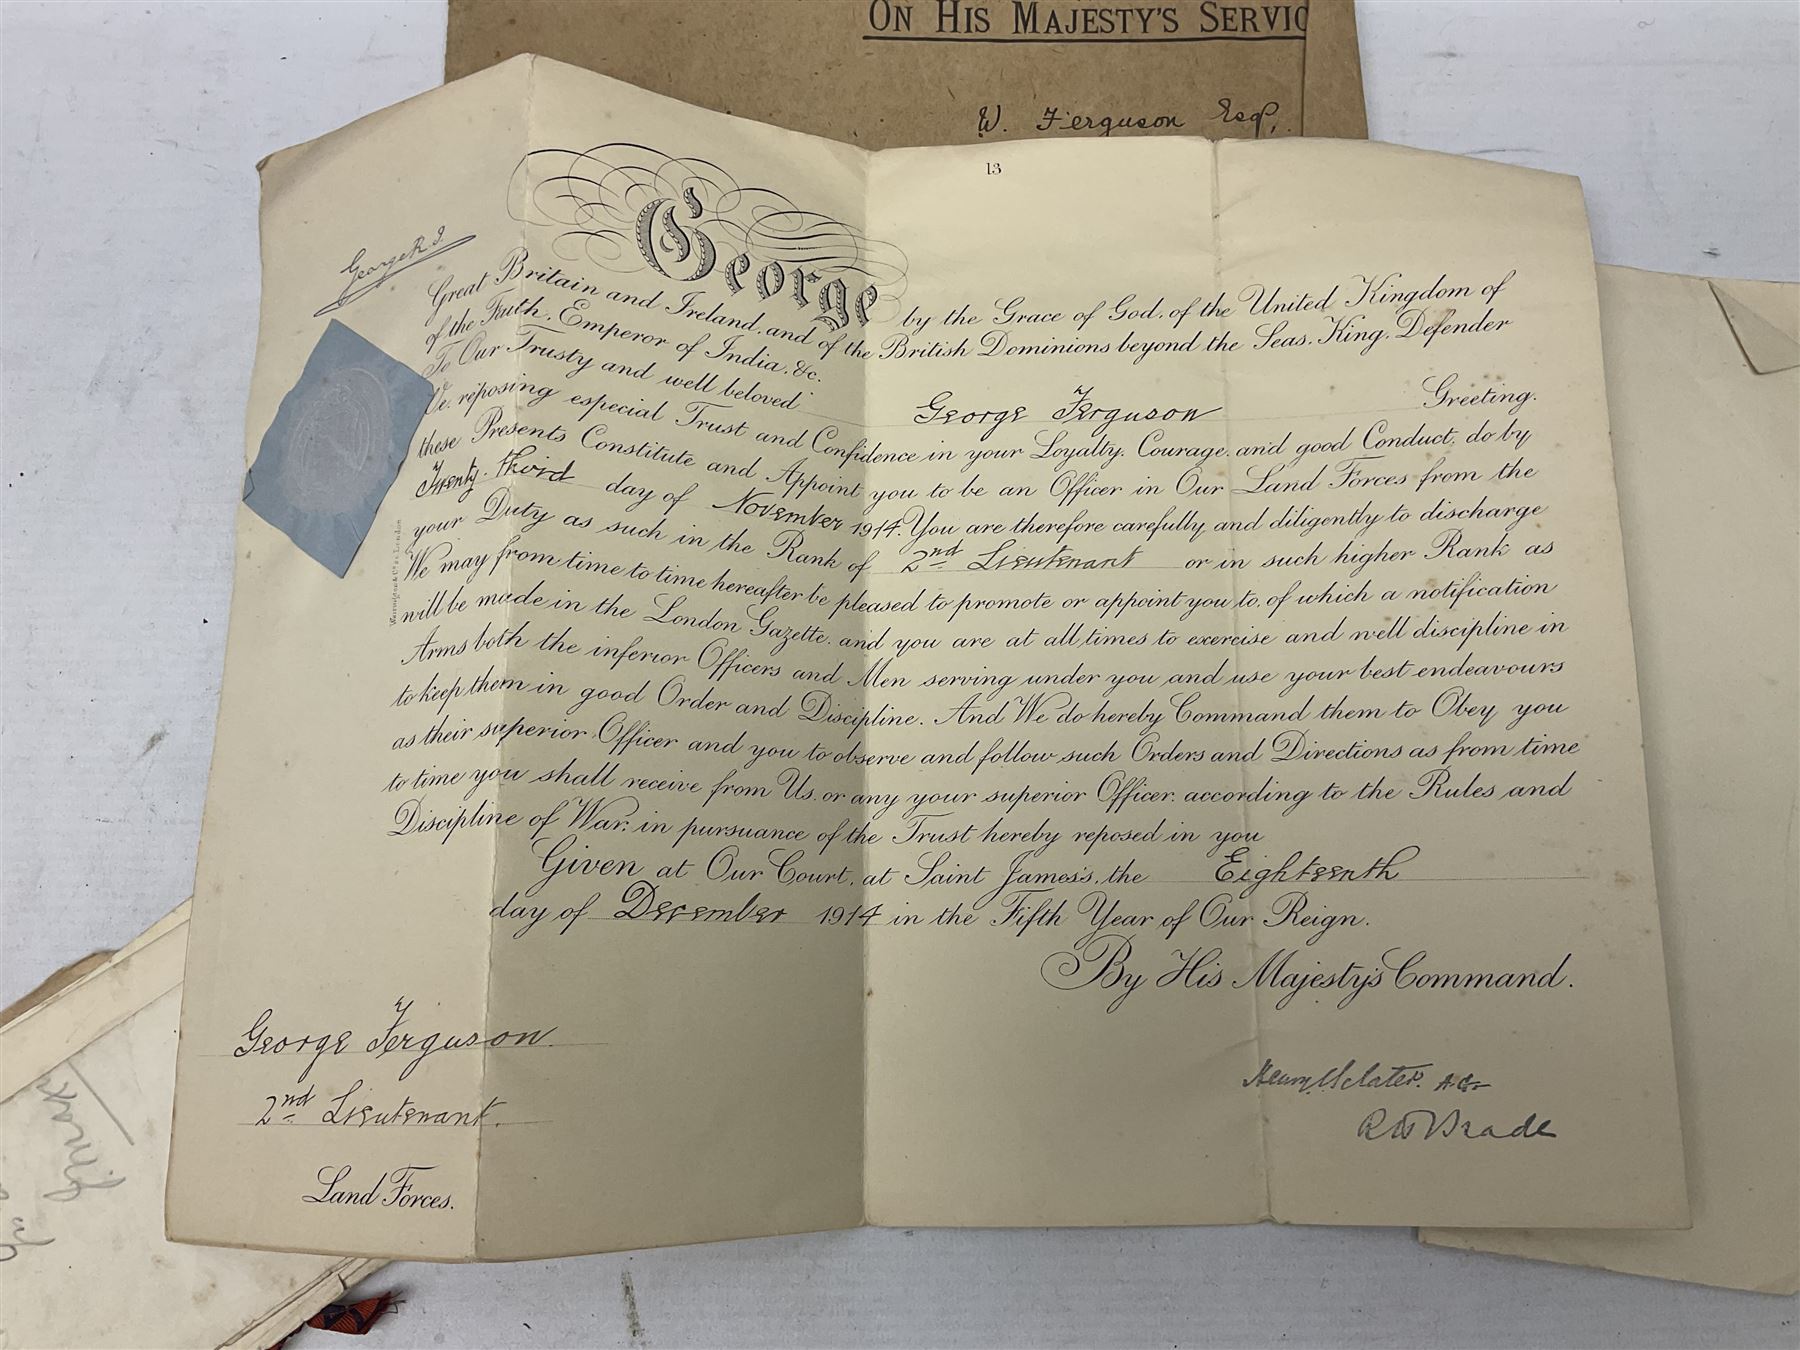 ON HIS MAJESTY'S SERVIC
W. Ferguson Esq.
13
George R.I.
George by the Grace of God, of the United Kingdom of
Great Britain and Ireland, and of the British Dominions beyond the Seas, King, Defender
of the Faith, Emperor of India, &c.
To Our Trusty and well beloved George Ferguson Greeting.
We, reposing especial Trust and Confidence in your Loyalty, Courage, and good Conduct, do by
these Presents Constitute and Appoint you to be an Officer in Our Land Forces from the
Twenty-third day of November 1914. You are therefore carefully and diligently to discharge
your Duty as such in the Rank of 2nd Lieutenant or in such higher Rank as
We may from time to time hereafter be pleased to promote or appoint you to, of which a notification
will be made in the London Gazette, and you are at all times to exercise and well discipline in
Arms both the inferior Officers and Men serving under you and use your best endeavours
to keep them in good Order and Discipline. And We do hereby Command them to Obey you
as their superior Officer and you to observe and follow such Orders and Directions as from time
to time you shall receive from Us, or any your superior Officer, according to the Rules and
Discipline of War, in pursuance of the Trust hereby reposed in you
Given at Our Court, at Saint James's, the Eighteenth
day of December 1914 in the Fifth Year of Our Reign.
By His Majesty's Command.
George Ferguson
2nd Lieutenant.
Land Forces.
Henry Sclater. A.G.
R H Brade